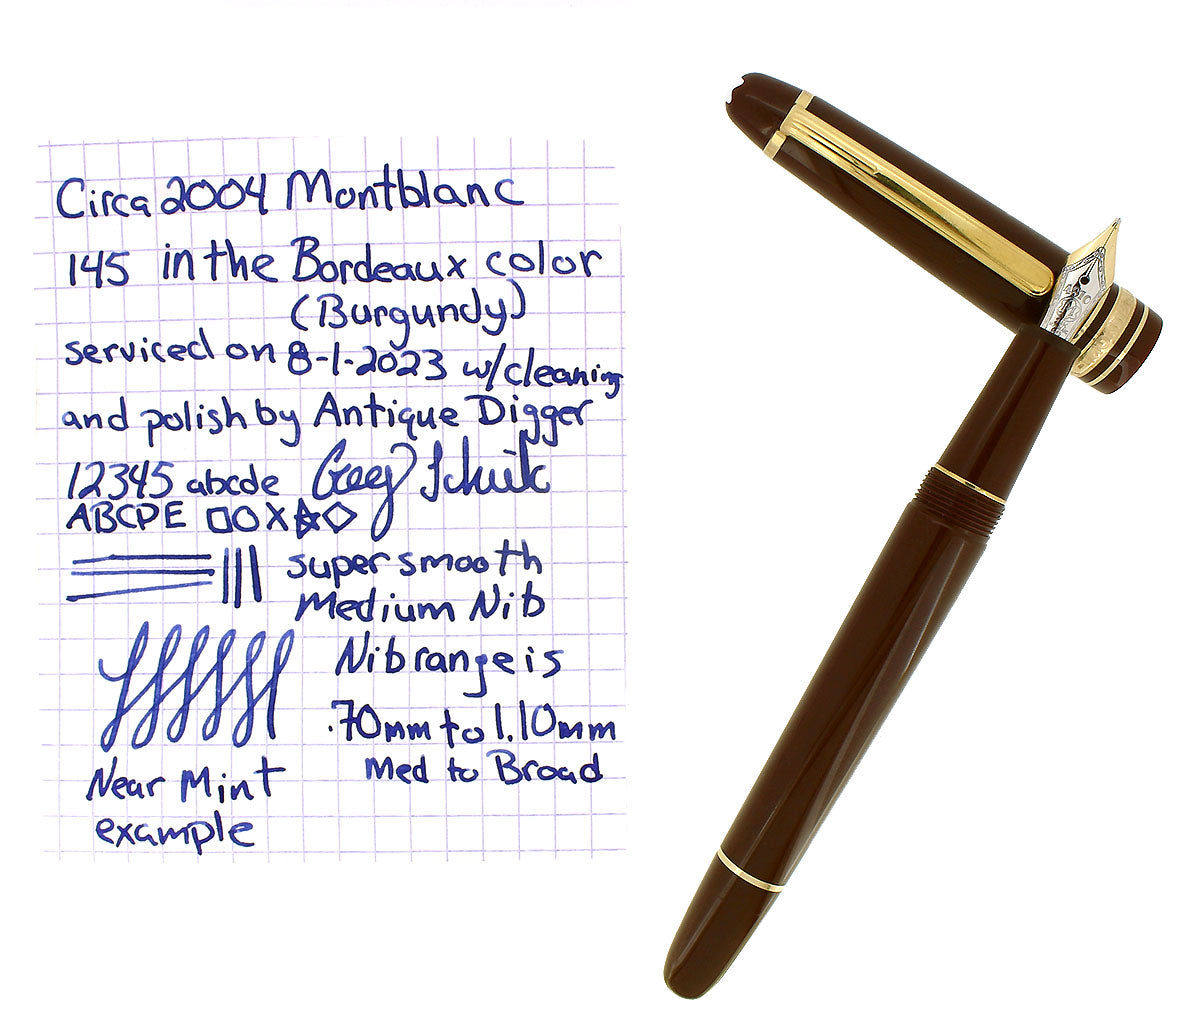 Circa 2004 Montblanc
145 in the Bordeaux color
(Burgundy)
serviced on 8-1-2023 w/cleaning
and polish by Antique Digger
12345 abcde
ABCDE
super smooth
Medium Nib
Nib range is
.70mm to 1.10mm
Med to Broad
Near Mint
example